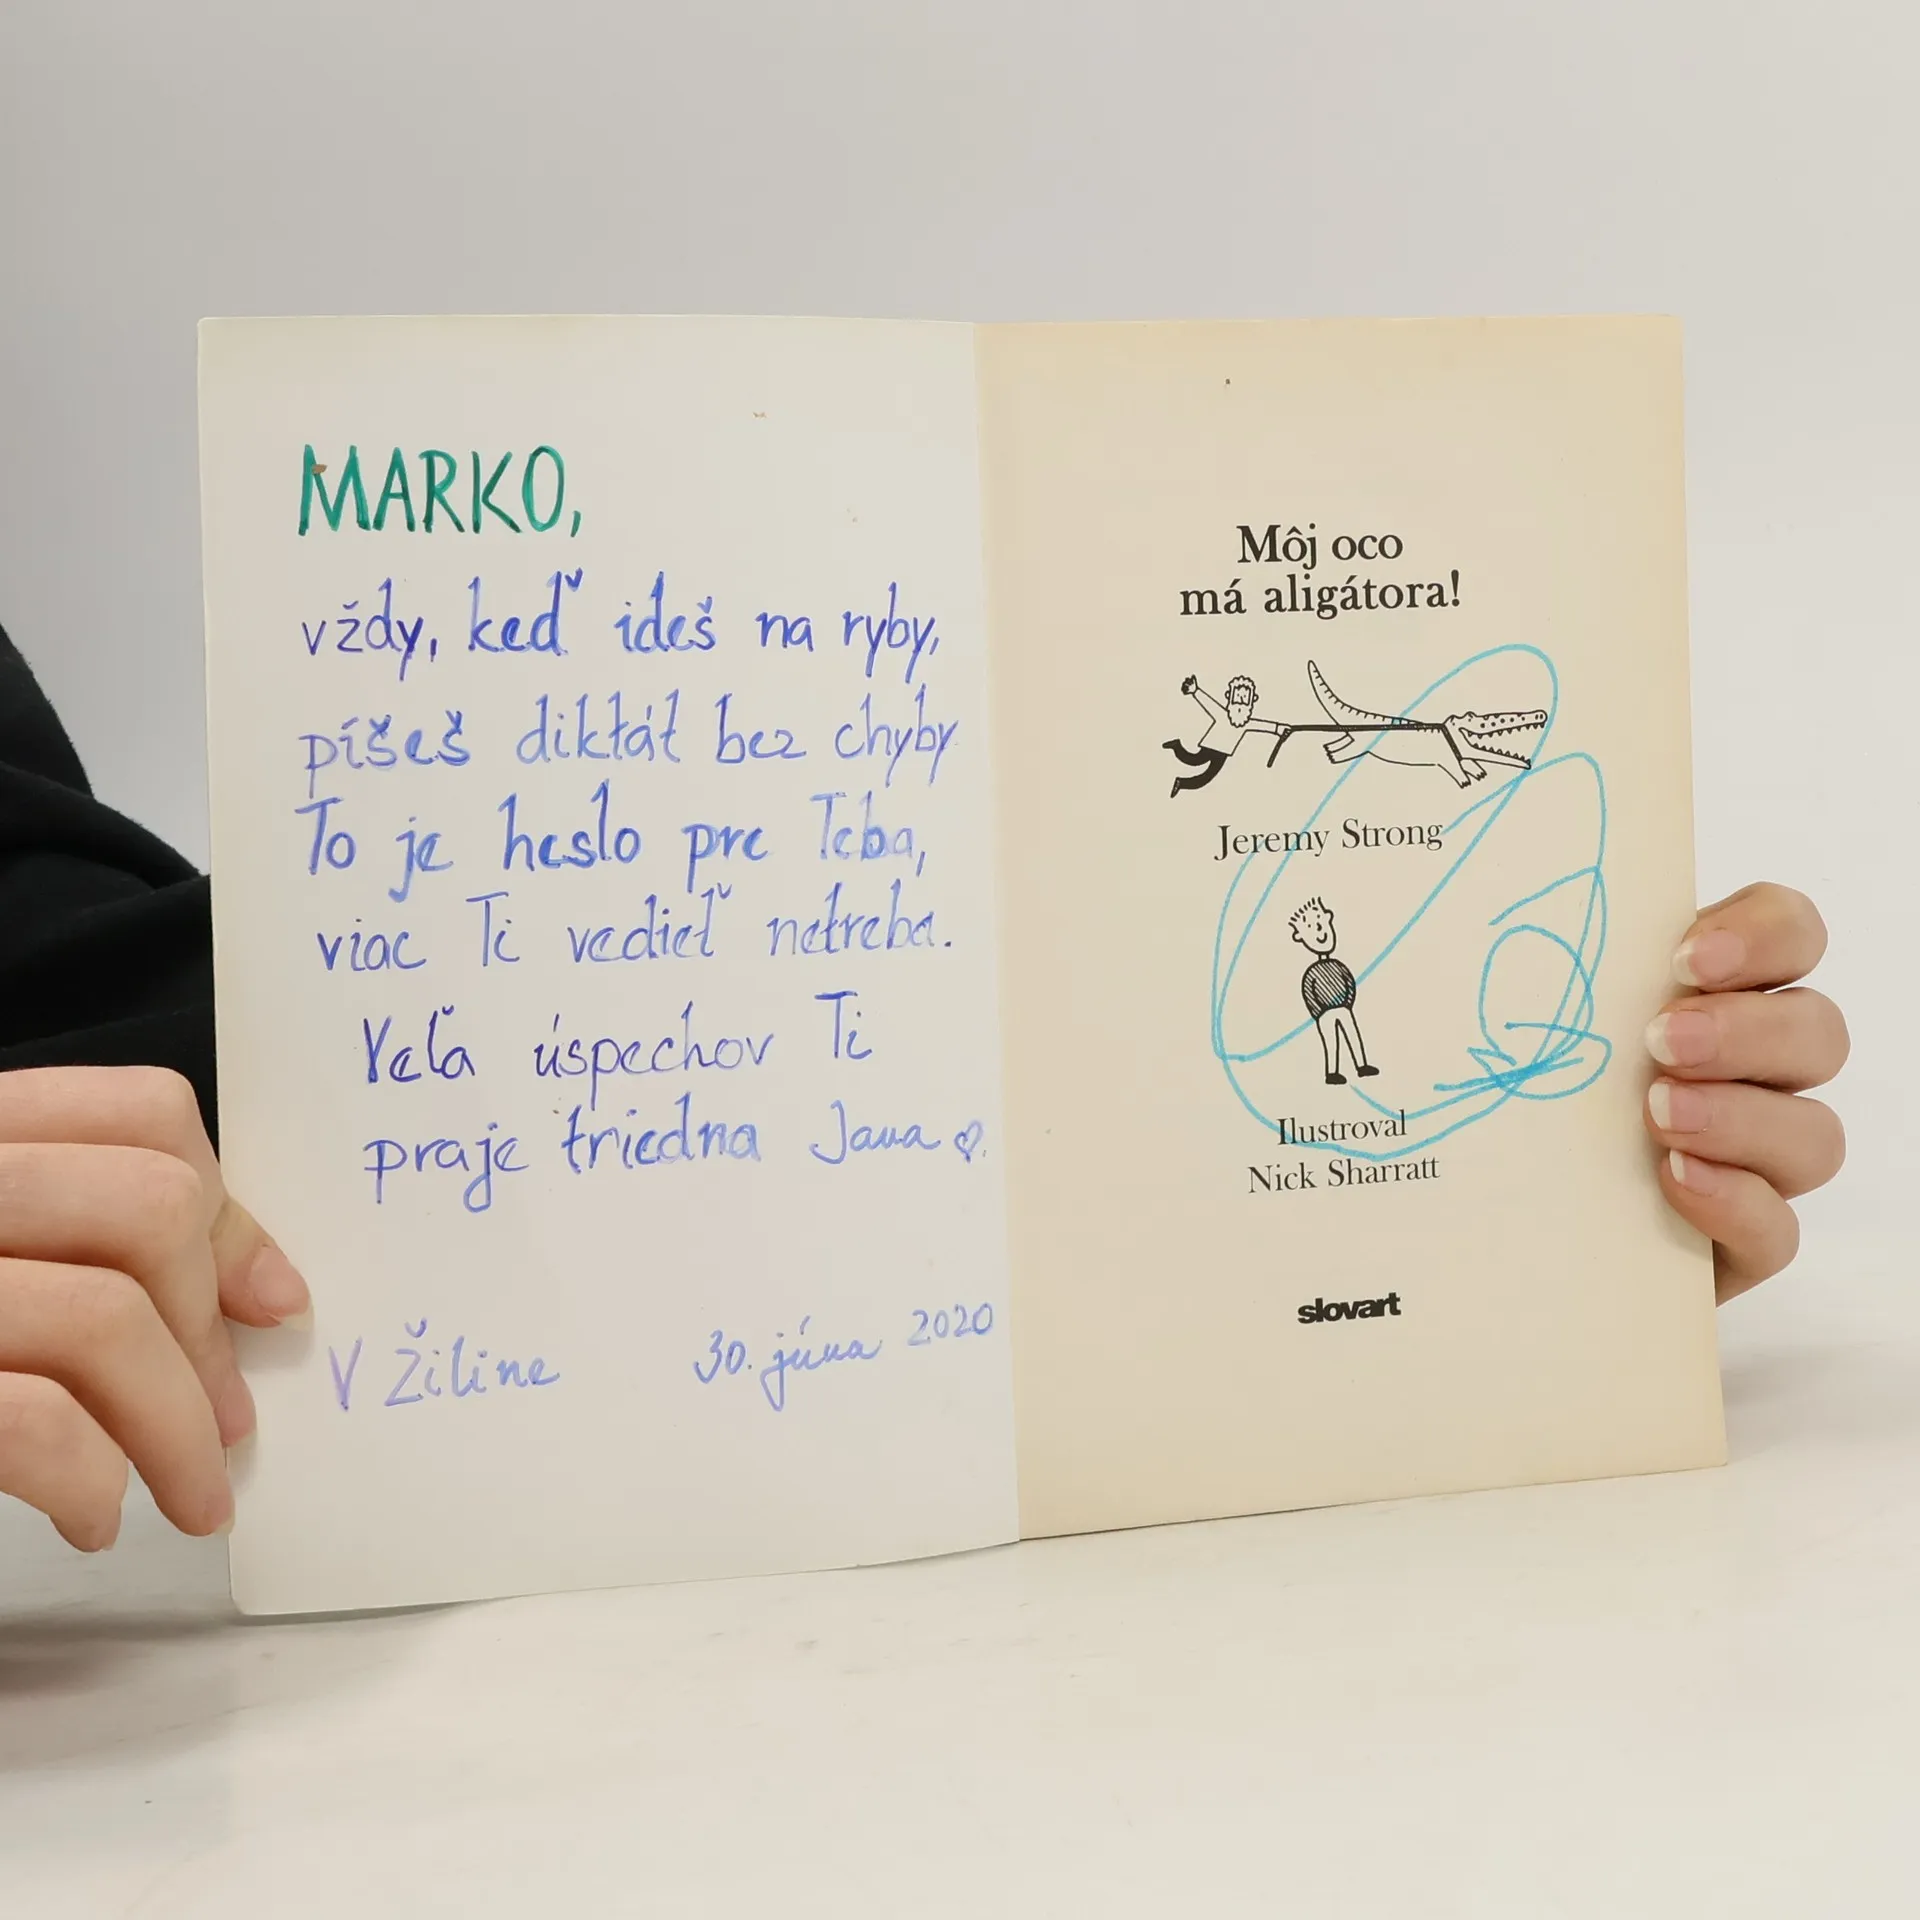 MARKO,
vždy, keď ideš na ryby,
píšeš diktát bez chyby
To je heslo pre Teba,
viac Ti vedieť netreba.
Veľa úspechov Ti
praje triedna Jana
V Žiline 30. júna 2020
Môj oco
má aligátora!
Jeremy Strong
Ilustroval
Nick Sharratt
slovart